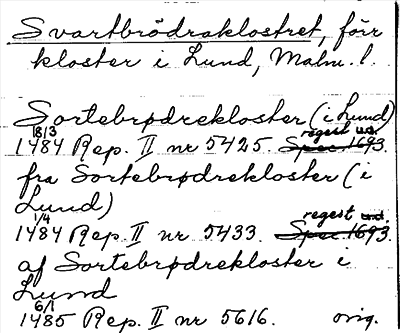 Svartbrödraklostret, förr
kloster i Lund, Malm. l.
Sortebrødrekloster (i Lund)
18/3 1484 Rep. II nr 5425. regest Spec 1693.
fra Sortebrødrekloster (i
Lund)
1/4 1484 Rep. II nr 5433. regest Spec 1693.
af Sortebrødrekloster i
Lund
6/1 1485 Rep. II nr 5616. orig.